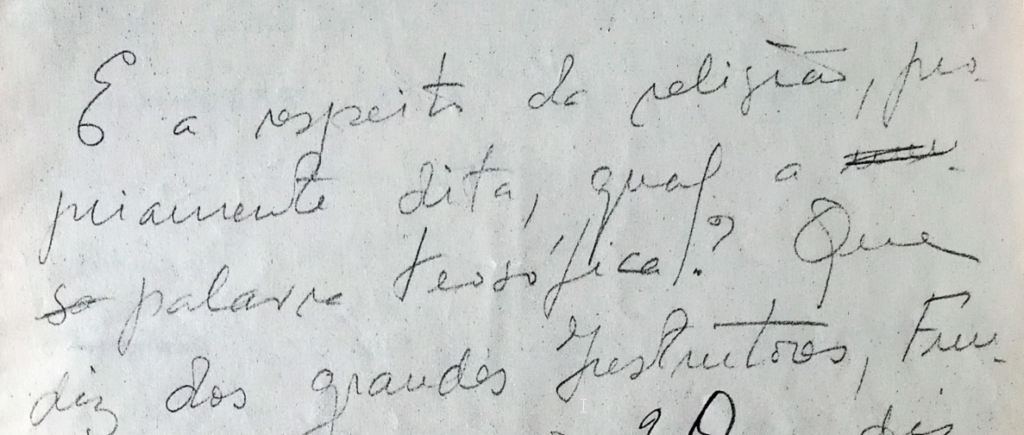 E a respeito da religião, pro-
priamente dita, qual a
palavra teosófica? Que
diz dos grandes Instrutores, Fun-